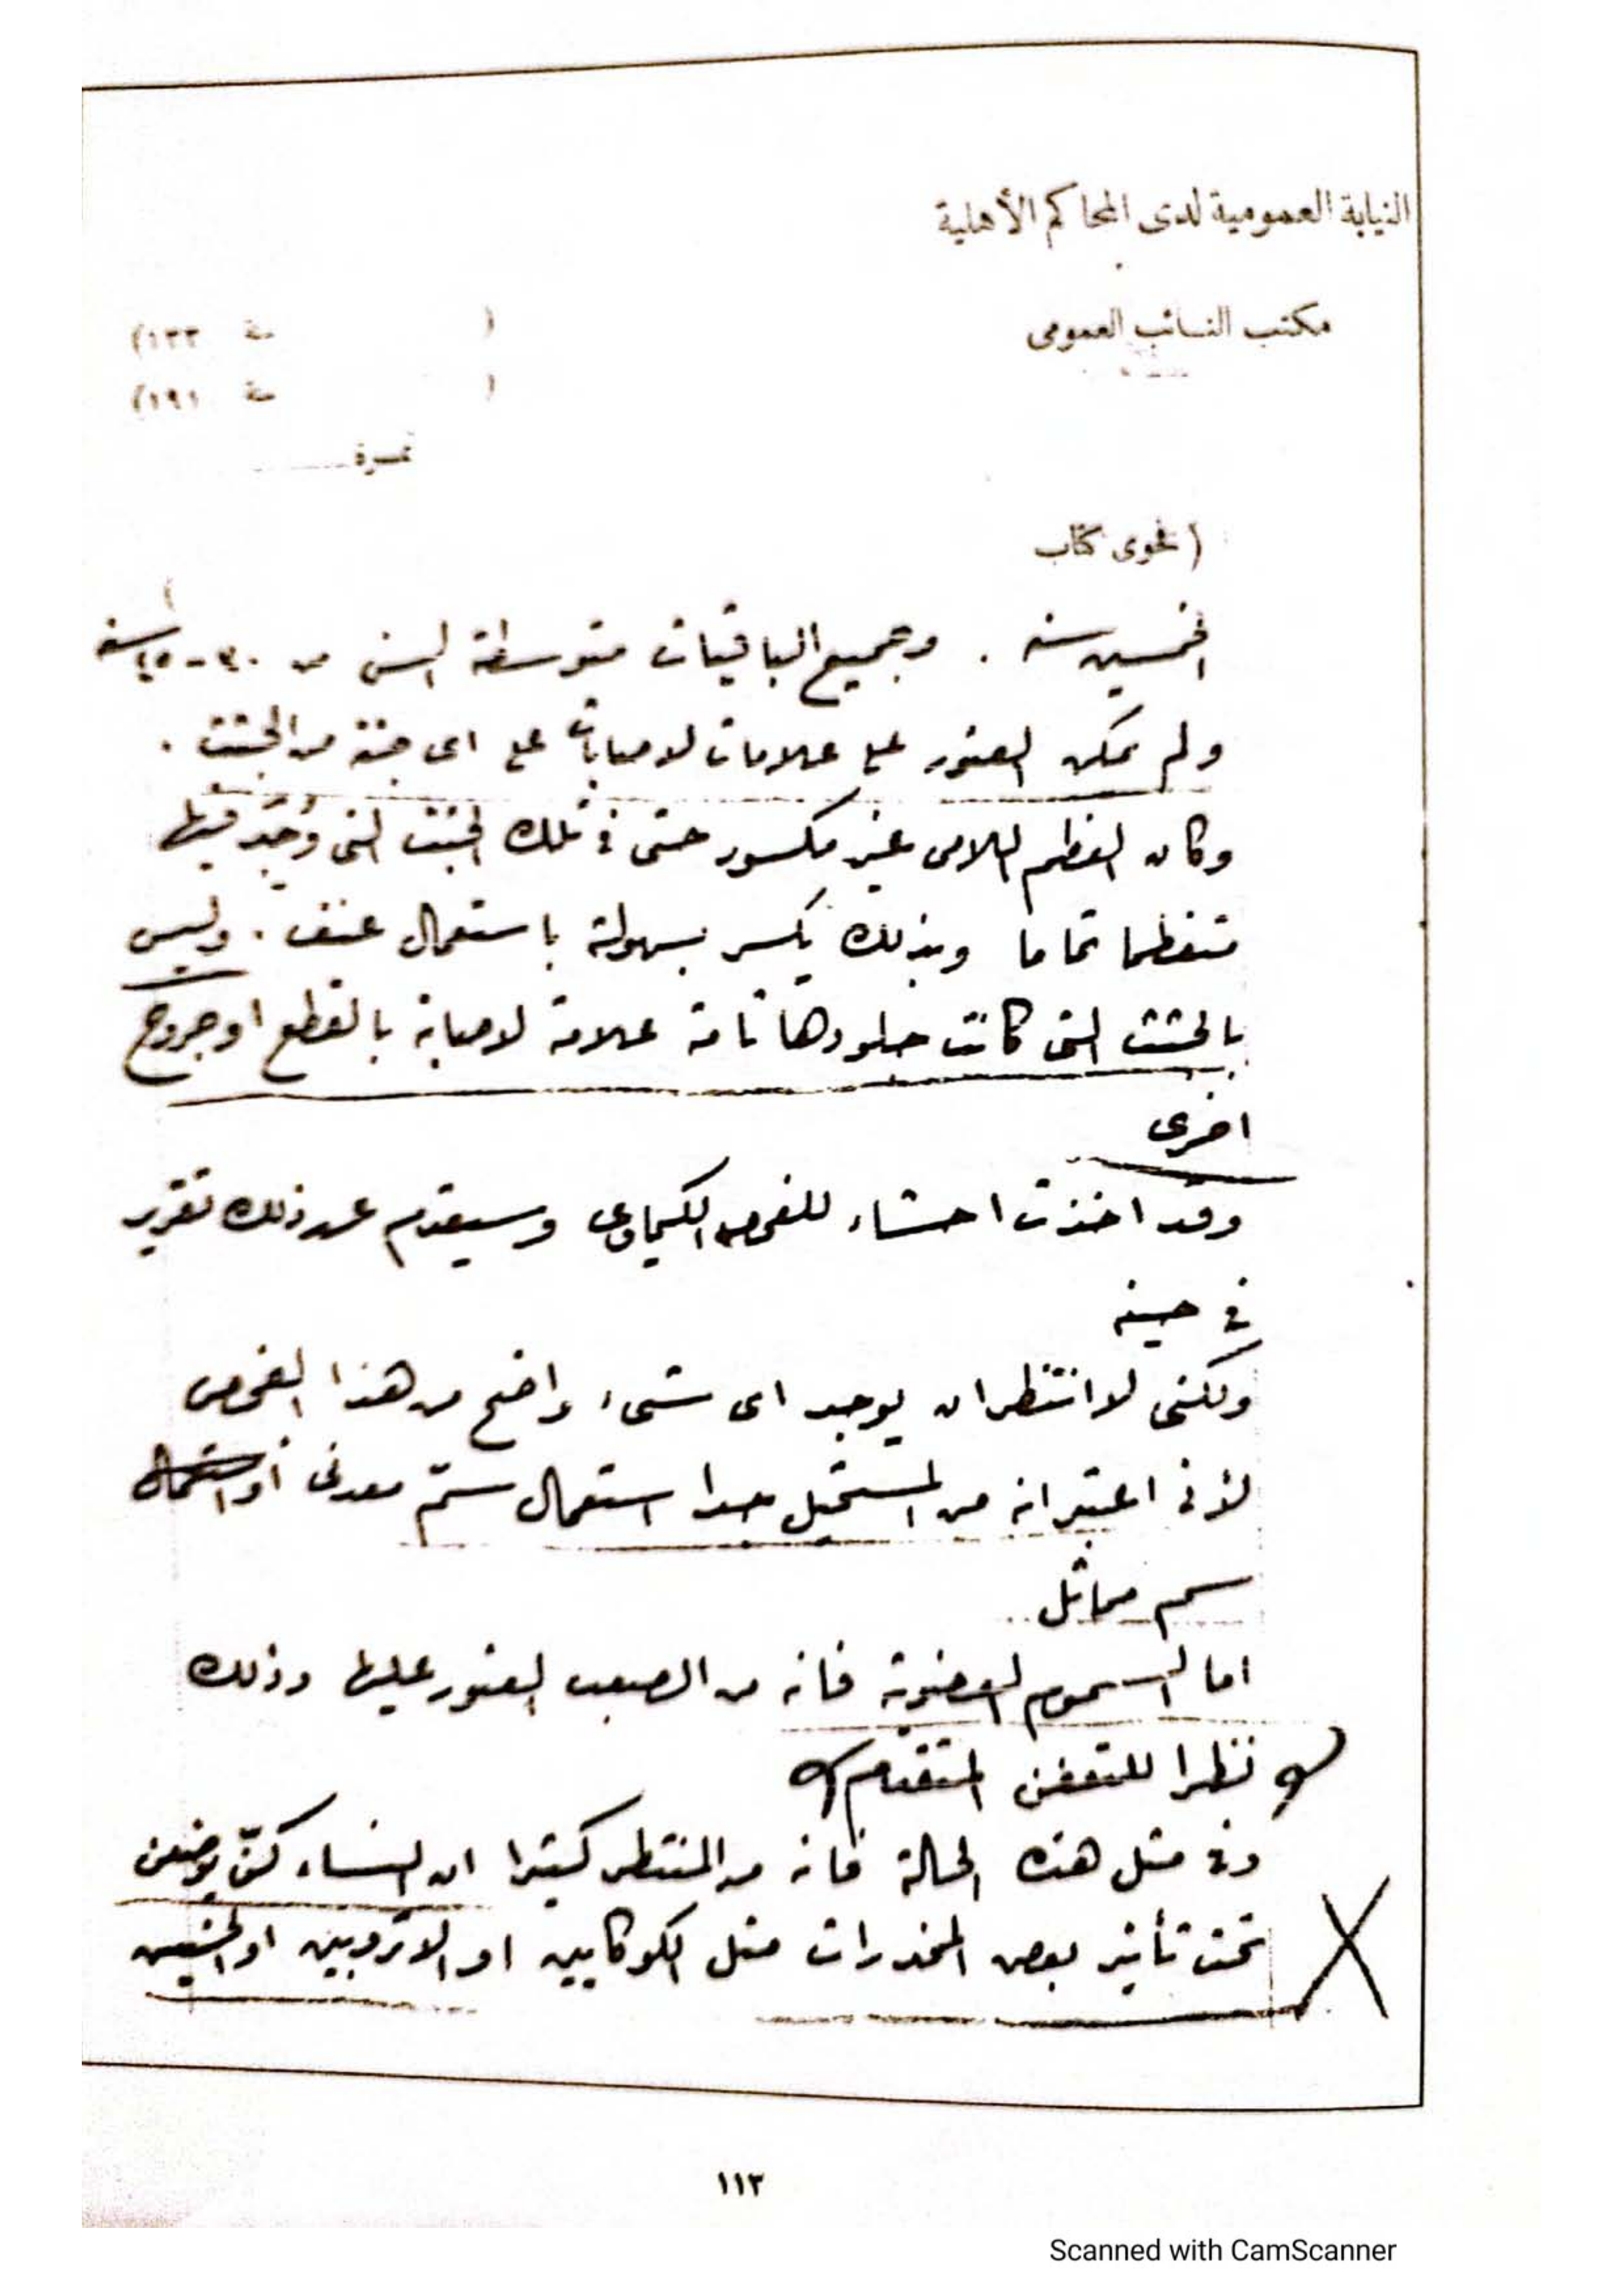 النيابة العمومية لدى المحاكم الأهلية
مكتب النائب العمومى
( سنة ١٣٣)
( سنة ١٩١)
نمرة
( فحوى كتاب
الخمسين سنه . وجميع الباقيات متوسطة السن من ٣٠ - ٤٥ سنه
ولم يمكن العثور على علامات لاصابات على اى جثة من الجثث .
وكان العظم اللامى غير مكسور حتى فى تلك الجثث التى وُجد فيها
متعظما تماما وبذلك يكسر بسهولة باستعمال عنف . وليس
بالجثث التى كانت جلودها تامة علامة لاصابة بالقطع او جروح
اخرى
وقد اخذت احشاء للفحص الكيماوى وسيقدم عن ذلك تقرير
فى حينه
ولكنى لا انتظر ان يوجد اى شىء واضح من هذا الفحص
لأنى اعتبر انه من المستحيل جدا استعمال سمّ معدنى أو استعمال
سم مماثل
اما السموم العضوية فانه من الصعب العثور عليها وذلك
نظرا للتعفن المتقدم
وفى مثل هذه الحالة فانه من المنتظر كثيرا ان النساء كنّ يوضعن
تحت تأثير بعض المخدرات مثل الكوكايين او الاتروبين او الحشيش
١١٢
Scanned with CamScanner